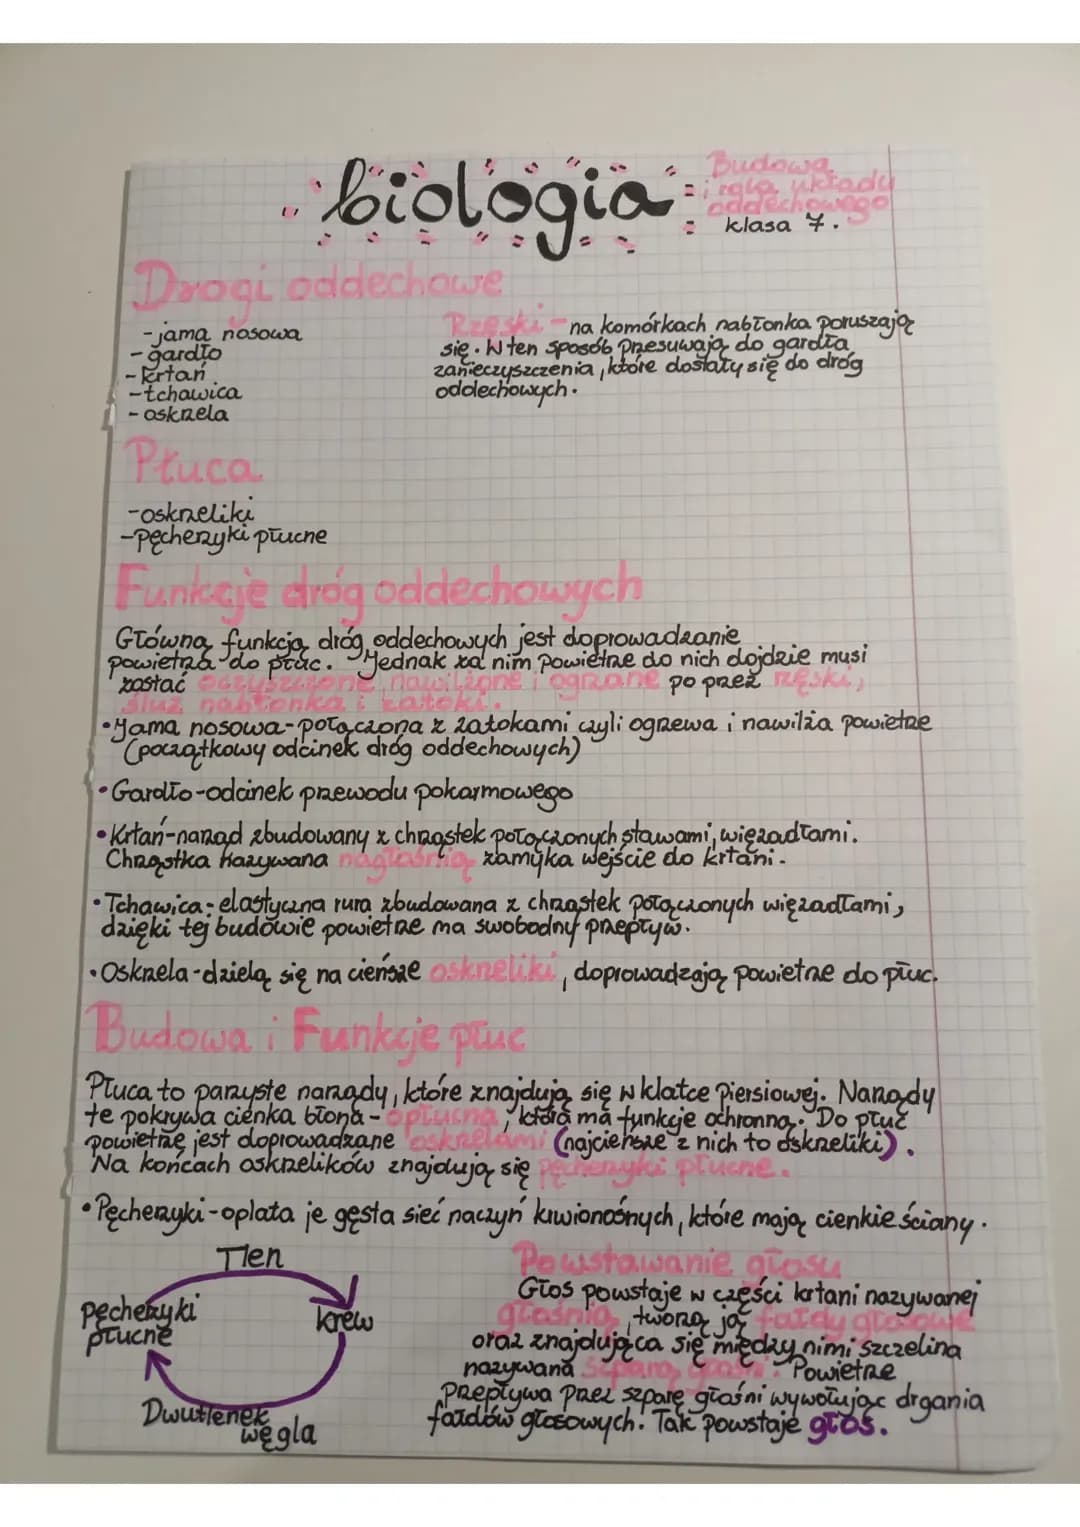 biologia
Budowa
i rola układu
oddechowego
klasa 7.
Drogi oddechowe
- jama nosowa
- gardło
- krtań
- tchawica
- oskrzela
Rzęski - na komórkach nabłonka poruszają
się. W ten sposób przesuwają do gardła
zanieczyszczenia, które dostały się do dróg
oddechowych.
Płuca
- oskrzeliki
- pęcherzyki płucne
Funkcje dróg oddechowych
Główną funkcją dróg oddechowych jest doprowadzanie
powietrza do płuc. Jednak za nim powietrze do nich dojdzie musi
zostać oczyszczone, nawilżone i ogrzane po przez rzęski,
śluz nabłonka i zatoki.
• Jama nosowa - połączona z zatokami czyli ogrzewa i nawilża powietrze
(początkowy odcinek dróg oddechowych)
• Gardło - odcinek przewodu pokarmowego
• Krtań - narząd zbudowany z chrząstek połączonych stawami, więzadłami.
Chrząstka nazywana nagłośnią zamyka wejście do krtani.
• Tchawica - elastyczna rura zbudowana z chrząstek połączonych więzadłami,
dzięki tej budowie powietrze ma swobodny przepływ.
• Oskrzela - dzielą się na cieńsze oskrzeliki, doprowadzają powietrze do płuc.
Budowa i Funkcje płuc
Płuca to parzyste narządy, które znajdują się w klatce piersiowej. Narządy
te pokrywa cienka błona - opłucna, która ma funkcje ochronną. Do płuc
powietrze jest doprowadzane oskrzelami (najcieńsze z nich to oskrzeliki).
Na końcach oskrzelików znajdują się pęcherzyki płucne.
• Pęcherzyki - oplata je gęsta sieć naczyń krwionośnych, które mają cienkie ściany.
Tlen
pęcherzyki
płucne
krew
Dwutlenek
węgla
Powstawanie głosu
Głos powstaje w części krtani nazywanej
głośnią, tworzą ją fałdy głosowe
oraz znajdująca się między nimi szczelina
nazywana szparą głośni. Powietrze
Przepływa przez szparę głośni wywołując drgania
fałdów głosowych. Tak powstaje głos.